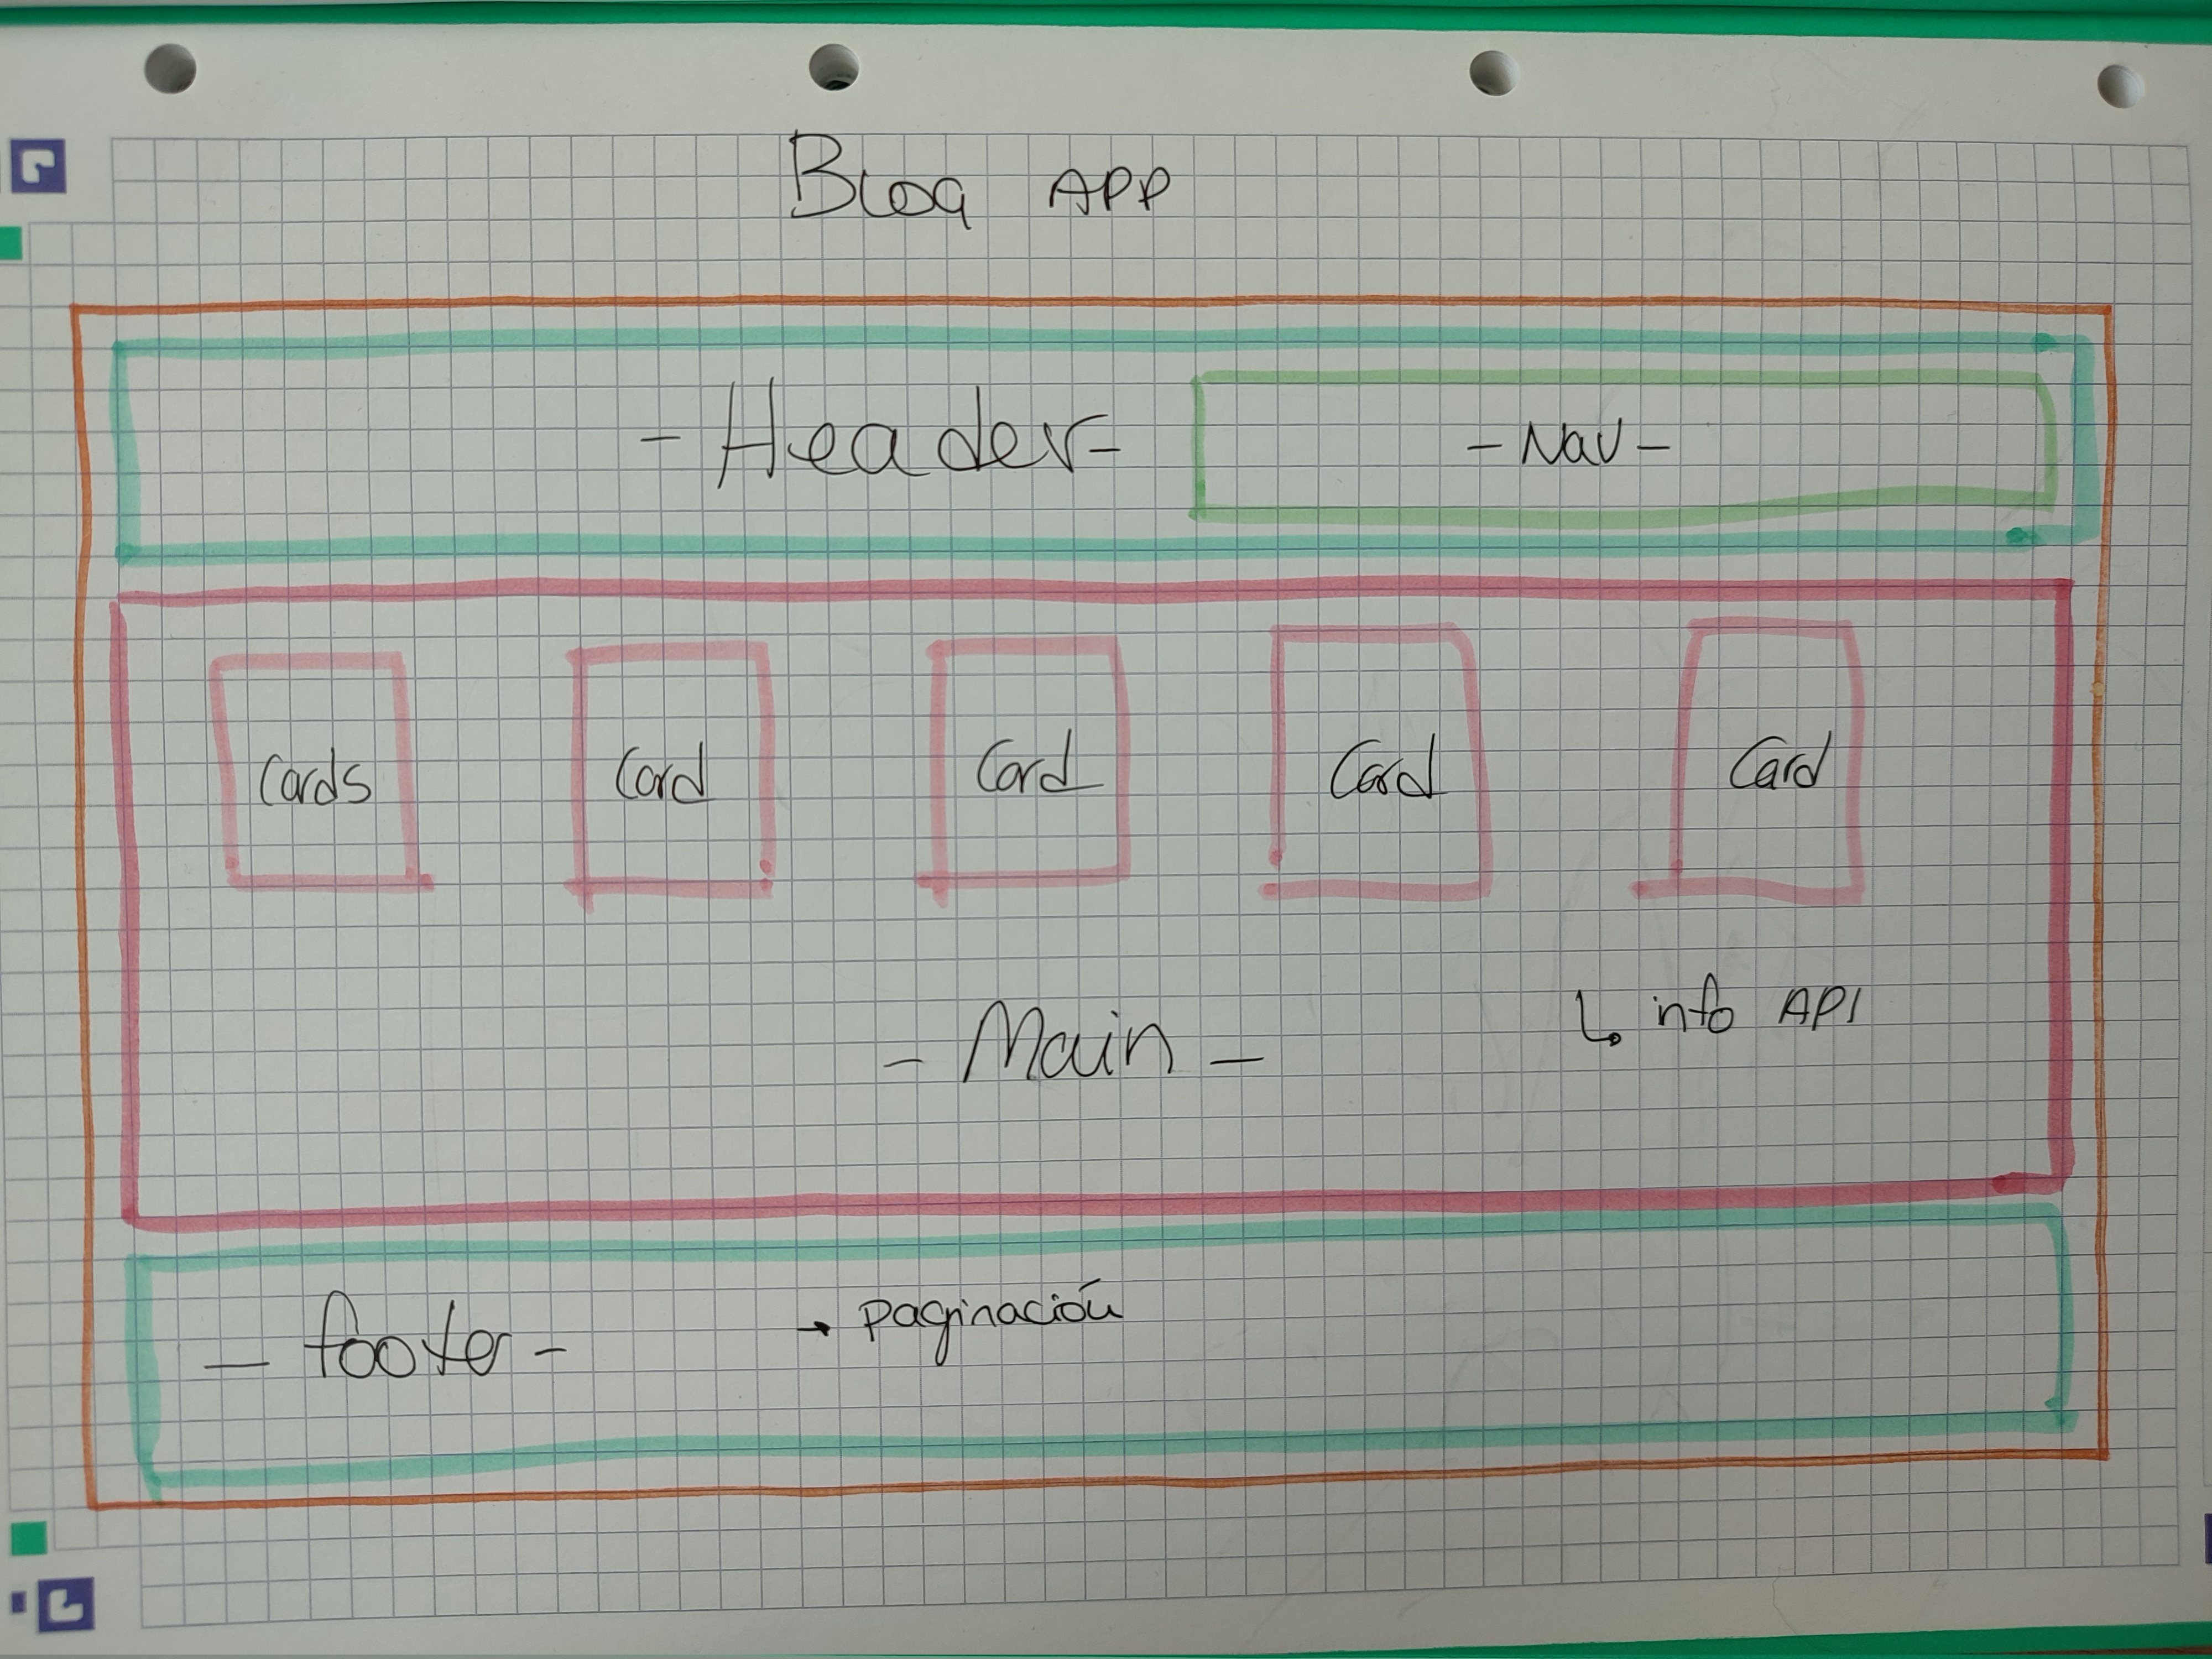 Blog APP
- Header -
- Nav -
Cards
Card
Card
Card
Card
- Main -
↳ info API
- footer -
→ paginación